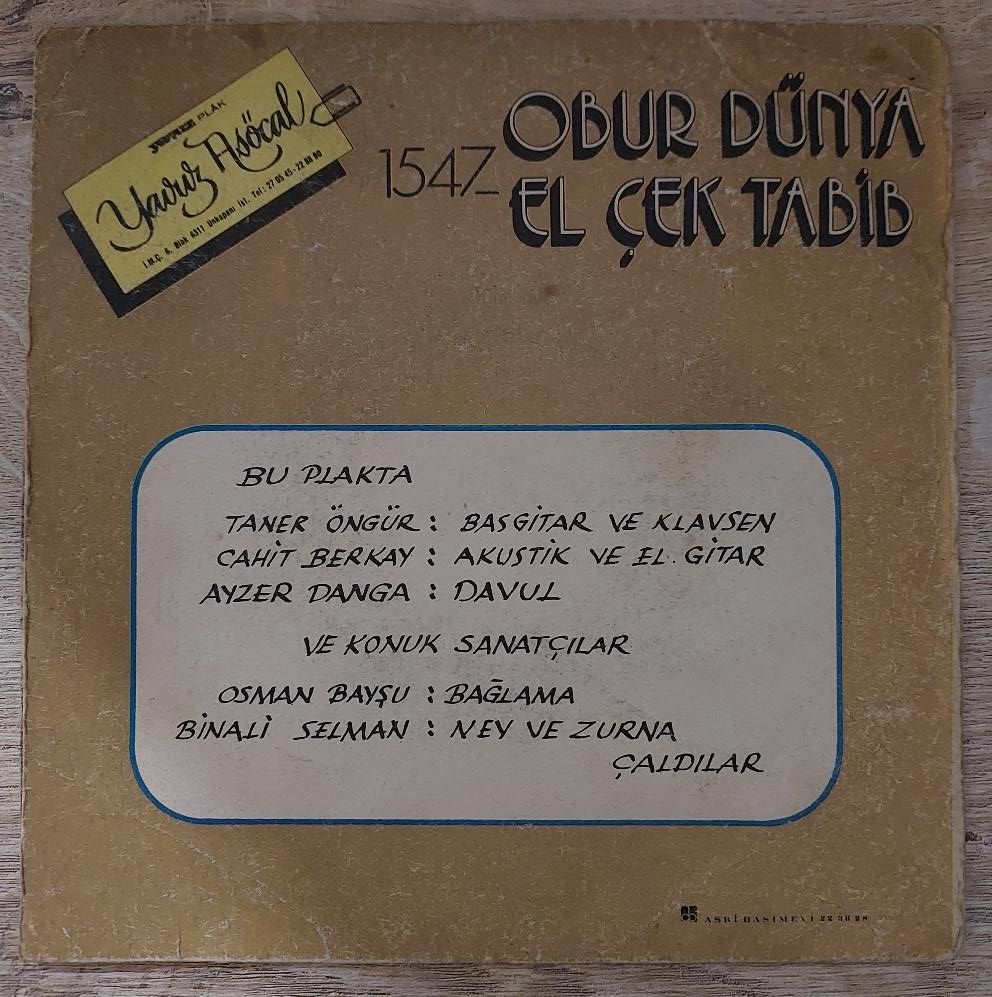 PLAK
Yavuz Asöcal
İ.M.Ç. 6. Blok 6311 Unkapanı İst. Tel: 27 05 45 - 22 08 80
1547_
OBUR DÜNYA
EL ÇEK TABİB
BU PLAKTA
TANER ÖNGÜR : BASGİTAR VE KLAVSEN
CAHİT BERKAY : AKUSTİK VE EL. GİTAR
AYZER DANGA : DAVUL
VE KONUK SANATÇILAR
OSMAN BAYŞU : BAĞLAMA
BİNALİ SELMAN : NEY VE ZURNA
ÇALDILAR
ASRİ BASIMEVİ 22 36 28